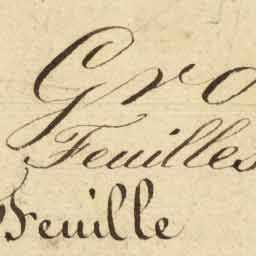 Gro
Feuilles
Feuille